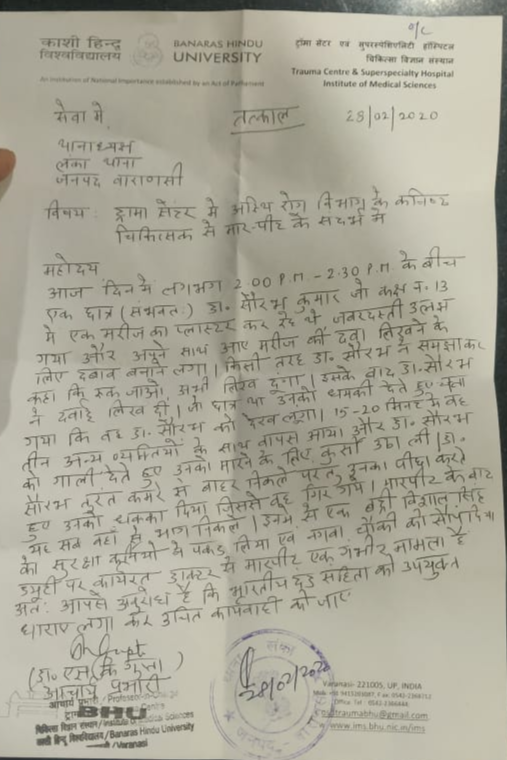 o/c
काशी हिन्दू विश्वविद्यालय
BANARAS HINDU UNIVERSITY
An Institution of National Importance established by an Act of Parliament
ट्रॉमा सेंटर एवं सुपरस्पेशिएलिटी हॉस्पिटल
चिकित्सा विज्ञान संस्थान
Trauma Centre & Superspecialty Hospital
Institute of Medical Sciences
सेवा में,
तत्काल
28/02/2020
थानाध्यक्ष
लंका थाना
जनपद वाराणसी
विषय : ट्रामा सेंटर मे अस्थि रोग विभाग के कनिष्ठ
चिकित्सक से मार-पीट के सदर्भ मे
महोदय
आज दिन मे लगभग 2.00 P.M - 2.30 P.M. के बीच
एक छात्र (संभवतः) डा. सौरभ कुमार जो कक्ष न. 13
मे एक मरीज का प्लास्टर कर रहे थे जबरदस्ती उलझ
गया और अपने साथ आए मरीज की दवा लिखने के
लिए दबाव बनाने लगा। किसी तरह डा. सौरभ ने समझाकर
कहा कि रूक जाओ, अभी लिख दूगा। इसके बाद डा. सौरभ
ने दवाई लिख दी। जो छात्र था उनको धमकी देते हुए चला
गया कि वह डा. सौरभ को देख लूगा। 15-20 मिनट मे वह
तीन अन्य व्यक्तियों के साथ वापस आया और डा. सौरभ
को गाली देते हुए उनको मारने के लिए कुर्सी उठा ली। डा.
सौरभ तुरत कमरे से बाहर निकले परतु इनका पीछा करते
हुए उनको धक्का दिया जिससे वह गिर गये। मारपीट के बाद
यह सब वहाँ से भाग निकले। इनमे से एक विशाल सिंह
के सुरक्षा कर्मियो ने पकड लिया एव नगवा चौकी को सौपा
ड्यूटी पर कार्यरत डाक्टर से मारपीट एक गंभीर मामला है
अतः आपसे अनुरोध है कि भारतीय दंड सहिता की उपयुक्त
धाराए लगा कर उचित कार्यवाही की जाए
(डा. एस. के. गुप्ता)
आचार्य प्रभारी
28/02/2020
आचार्य प्रभारी / Professor-in-Charge
BHU
चिकित्सा विज्ञान संस्थान / Institute of Medical Sciences
काशी हिन्दू विश्वविद्यालय / Banaras Hindu University
/Varanasi
Varanasi- 221005, UP, INDIA
traumabhu@gmail.com
www.ims.bhu.nic.in/ims